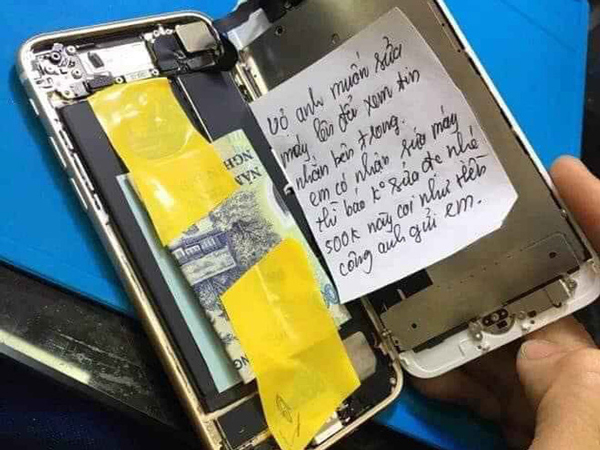 Vợ anh muốn sửa
máy lên để xem tin
nhắn bên trong.
em có nhận sửa máy
thì báo k° sửa đc nhé
500k này coi như tiền
công anh gửi em.
NAM
NGH